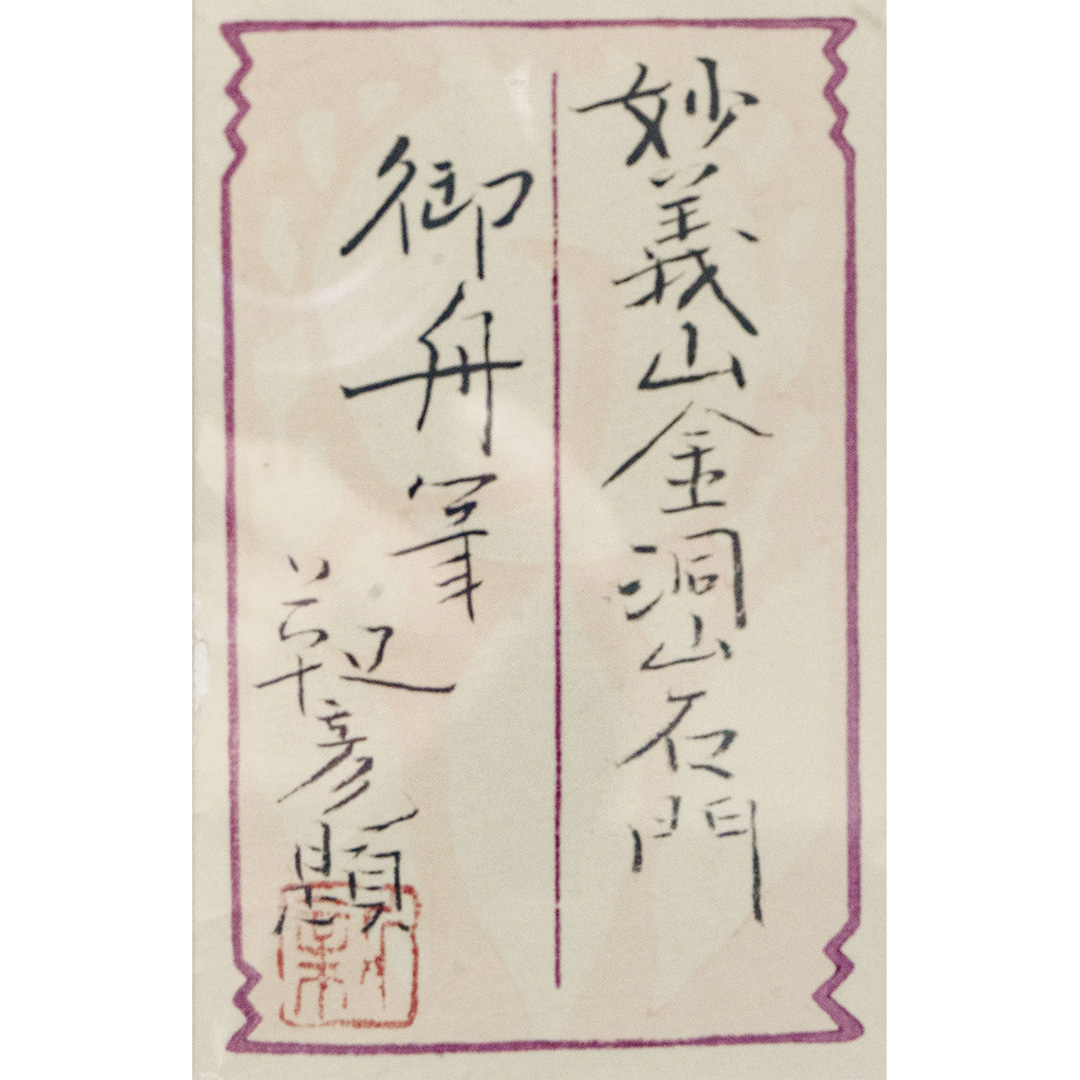 妙義山金洞山石門
御舟筆
彦題